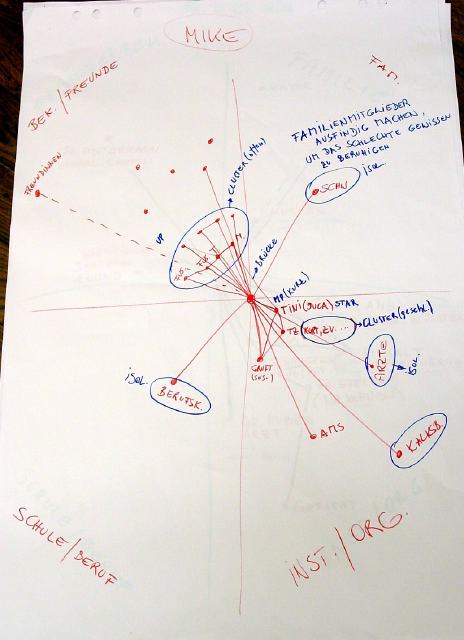 MIKE
BEK./FREUNDE
FAM.
FAMILIENMITGLIEDER
AUSFINDIG MACHEN,
UM DAS SCHLECHTE GEWISSEN
ZU BERUHIGEN
FREUNDINNEN
CLUSTER (offen)
SCHW
isol.
UP
BRÜCKE
MP (KURZ)
TINI (JUCA) STAR
CLUSTER (geschl.)
GRUFT
ÄRZTE
isol.
isol.
BERUFSK.
AMS
KALKSB.
SCHULE/BERUF
INST./ORG.